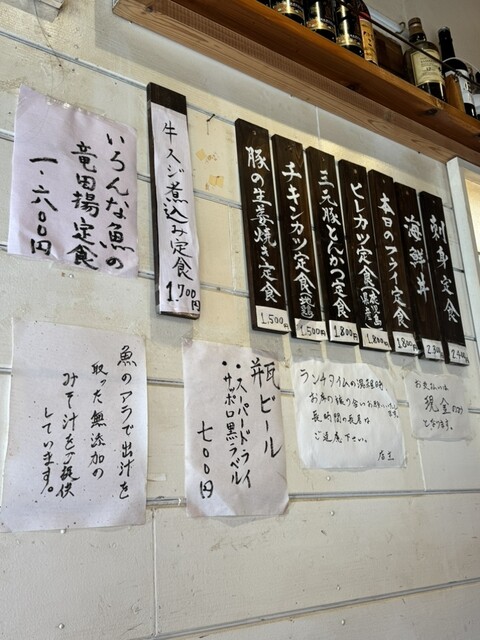 いろんな魚の
竜田揚定食
一、六〇〇円
牛スジ煮込み定食
1700円
豚の生姜焼き定食
1,500円
チキンカツ定食(地鶏)
1,500円
三元豚とんかつ定食
1,800円
ヒレカツ定食
1,800円
本日のフライ定食
1,800円
海鮮丼
刺身定食
魚のアラで出汁を
取った無添加の
みそ汁をご提供
しています。
瓶ビール
・スーパードライ
・サッポロ黒ラベル
七〇〇円
ランチタイムの混雑時
お席の譲り合いお願いいたします。
長時間の長居は
ご遠慮下さい。
店主
お支払いは
現金のみ
となります。